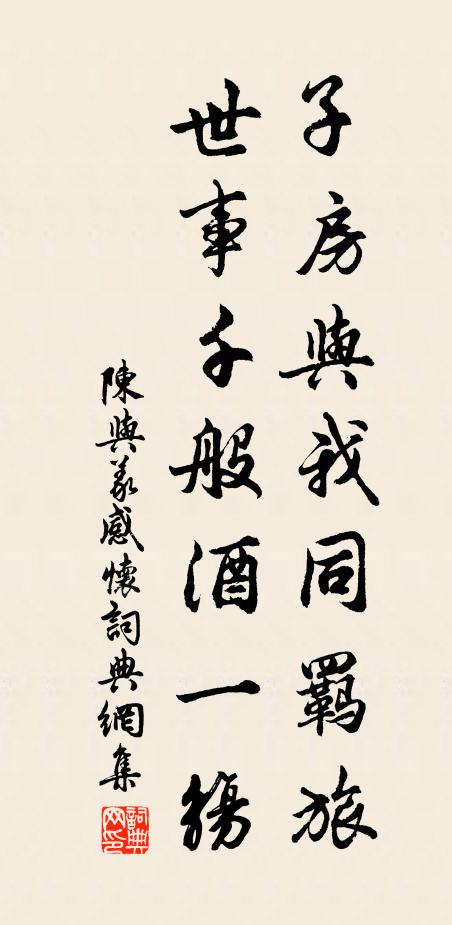 子房與我同羈旅
世事千般酒一觴
陳與義感懷詞典網集
詞典網印